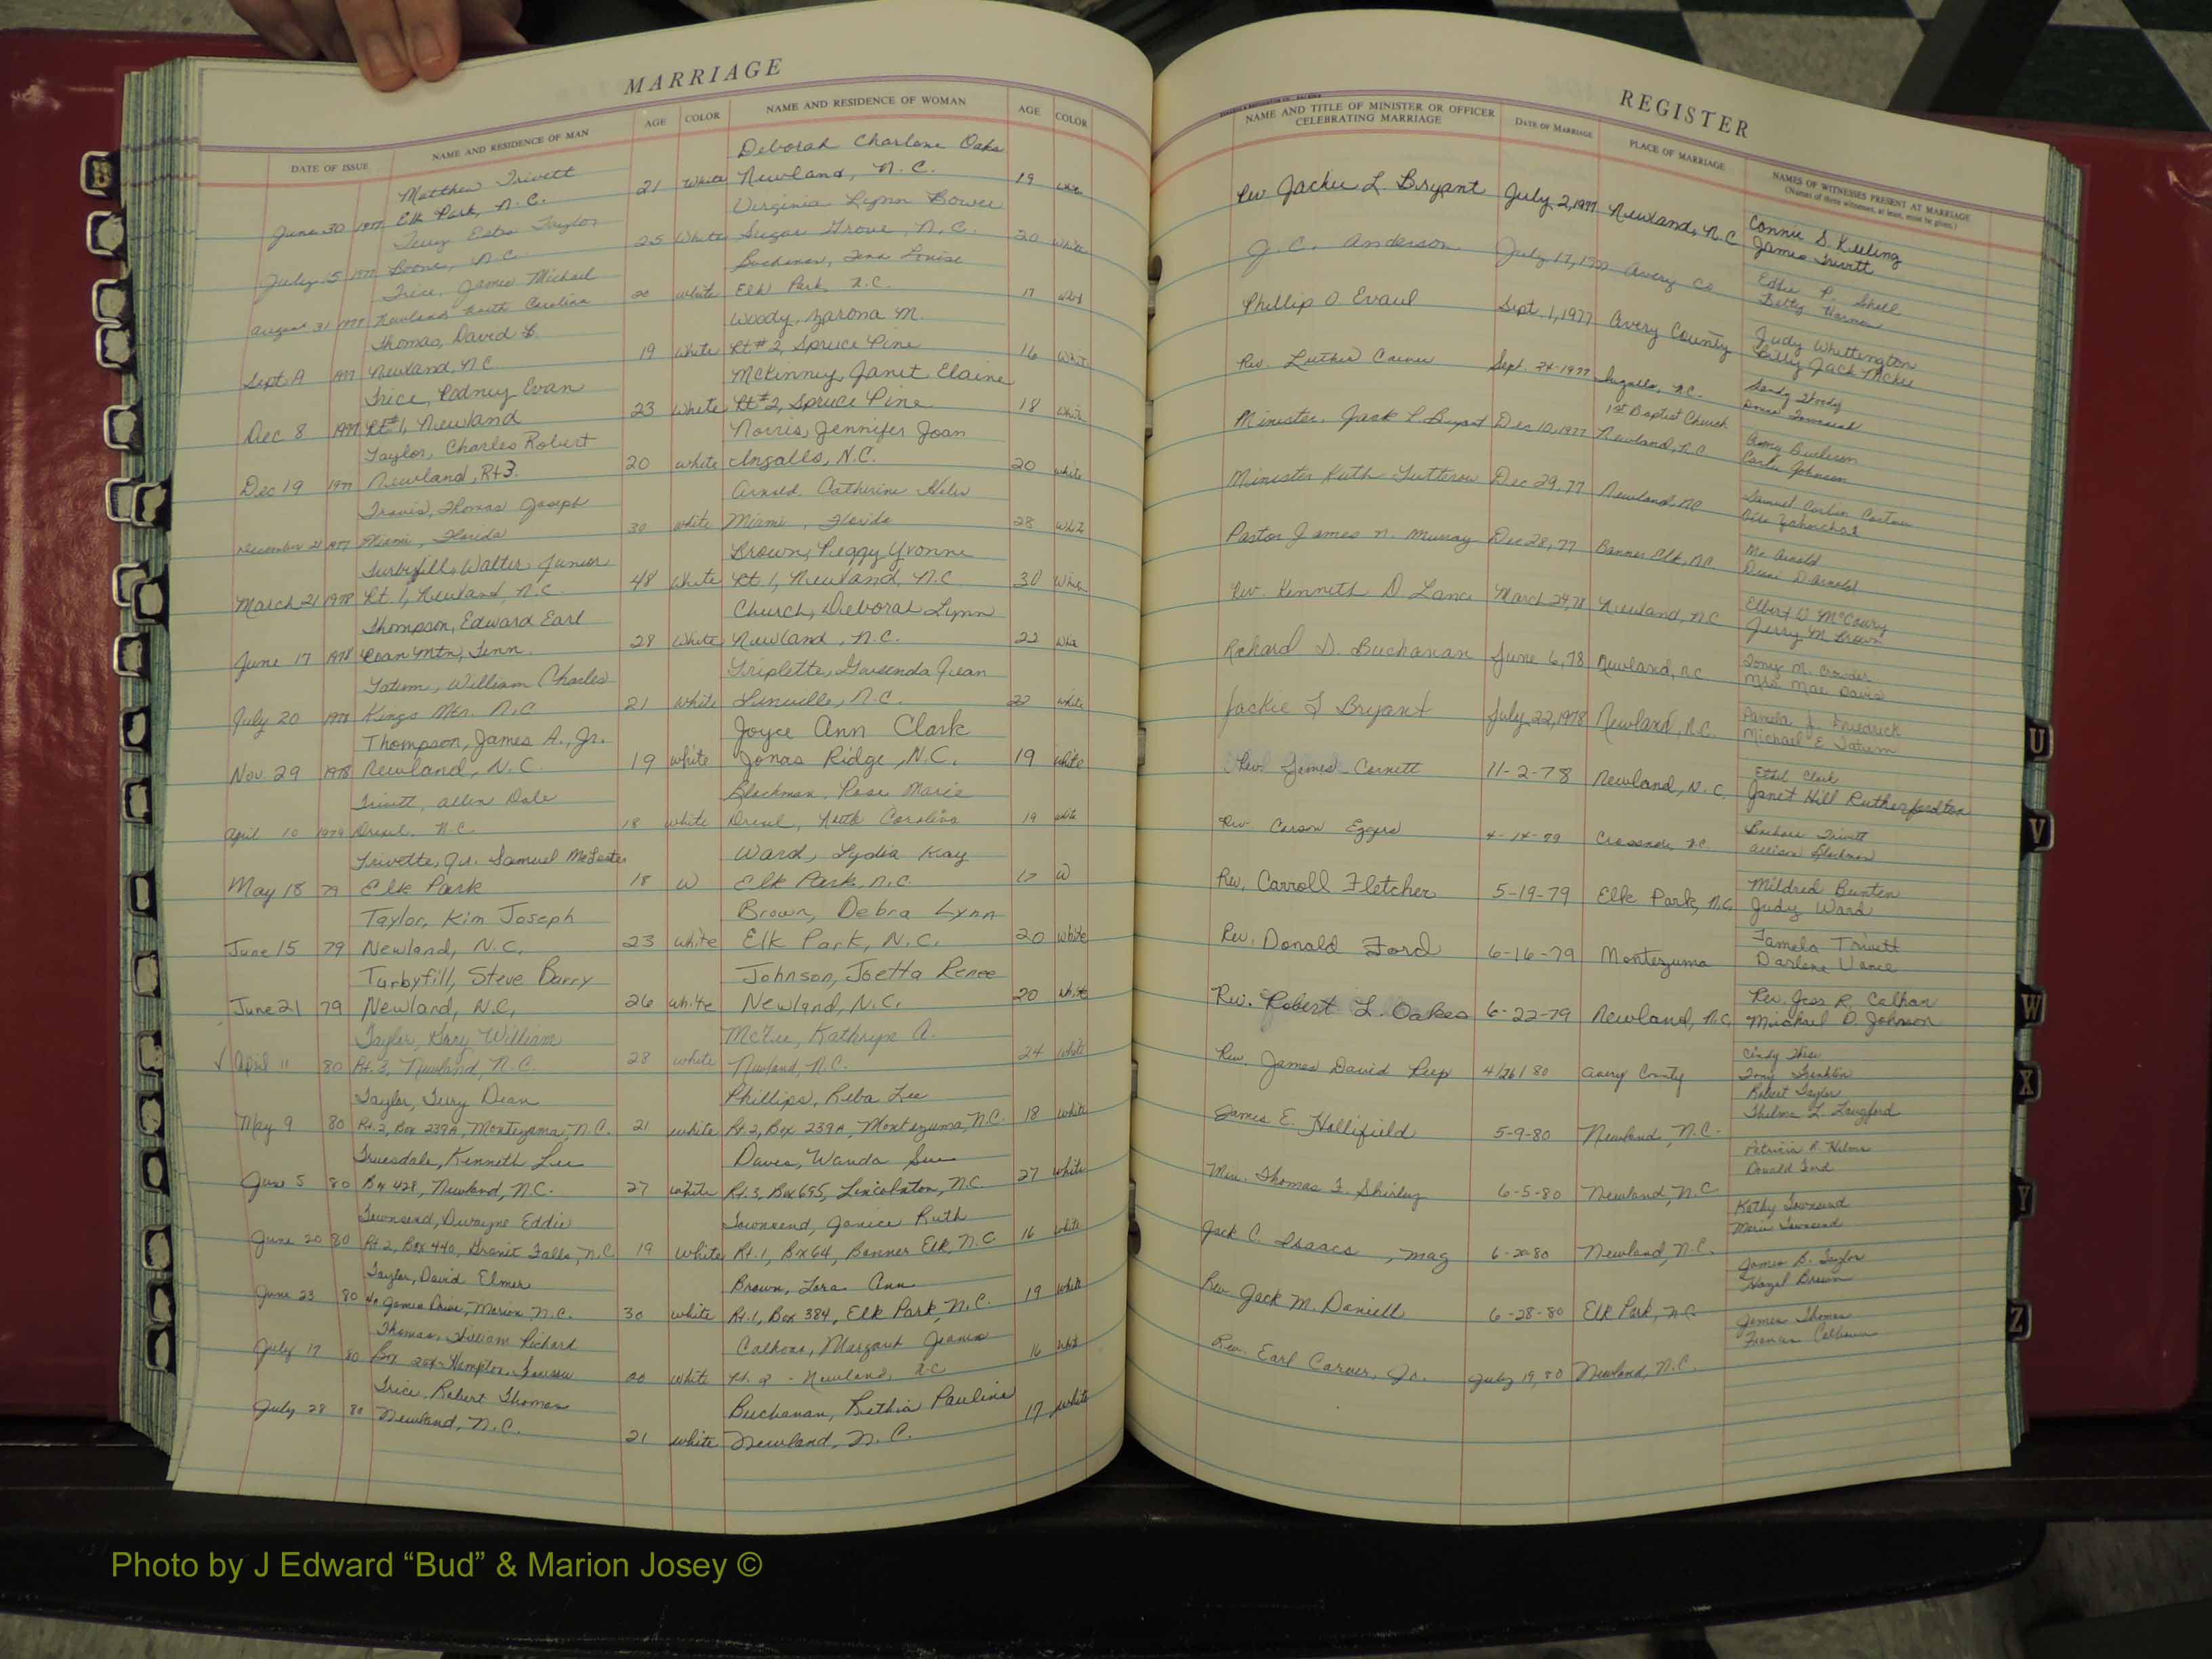 MARRIAGE
DATE OF ISSUE NAME AND RESIDENCE OF MAN AGE COLOR NAME AND RESIDENCE OF WOMAN AGE COLOR
Matthew Trivett Deborah Charlene Oaks
June 30 1977 Elk Park, N.C. 21 White Newland, N.C. 19 white
Terry Estes Taylor Virginia Lynn Bowee
July 15 1977 Boone, N.C. 25 White Sugar Grove, N.C. 20 White
Trice, James Michael Buchanan, Tena Louise
August 31 1977 Newland North Carolina 20 white Elk Park, N.C. 17 whit
Thomas, David Woody, Zarona M.
Sept 1977 Newland, NC 19 white Rt #2, Spruce Pine 16 White
Trice, Rodney Evan McKinney, Janet Elaine
Dec 8 1977 Rt#1, Newland 23 white Rt #2, Spruce Pine 18 white
Taylor, Charles Robert Norris, Jennifer Joan
Dec 19 1977 Newland, Rt 3. 20 white Ingalls, N.C. 20 white
Travis, Thomas Joseph Arnold, Catherine Helen
December 21 1977 Miami, Florida 30 white Miami, Florida 28 white
Turbyfill, Walter Junior Brown, Peggy Yvonne
March 21 1978 Rt. 1, Newland, N.C. 48 White Rt 1, Newland, N.C. 30 White
Thompson, Edward Earl Church, Deborah Lynn
June 17 1978 Roan Mtn, Tenn. 28 White Newland, N.C. 22 White
Tatum, William Charles Triplette, Gwenda Jean
July 20 1978 Kings Mtn. N.C 21 white Linville, N.C. 22 white
Thompson, James A., Jr. Joyce Ann Clark
Nov. 29 1978 Newland, N.C. 19 white Jonas Ridge, N.C. 19 white
Trivitt, Allen Dale Blackman, Rose Marie
April 10 1979 Drexel, N.C. 18 white Drexel, North Carolina 19 white
Trivette, Jr. Samuel McLester Ward, Lydia Kay
May 18 79 Elk Park 18 W Elk Park, N.C. 17 W
Taylor, Kim Joseph Brown, Debra Lynn
June 15 79 Newland, N.C. 23 white Elk Park, N.C. 20 white
Turbyfill, Steve Barry Johnson, Joetta Renee
June 21 79 Newland, N.C. 26 white Newland, N.C. 20 White
Taylor, Gary William McFee, Kathryn A.
√ April 11 80 Rt. 3, Newland, N.C. 28 white Newland, N.C. 24 White
Taylor, Terry Dean Phillips, Reba Lee
May 9 80 Rt. 2, Box 239A, Montezuma, N.C. 21 white Rt. 2, Box 239A, Montezuma, N.C. 18 white
Truesdale, Kenneth Lee Davis, Wanda Sue
June 5 80 Bx 428, Newland, N.C. 27 white Rt. 3, Box 695, Lincolnton, N.C. 27 white
Townsend, Dwayne Eddie Townsend, Janice Ruth
June 20 80 Rt. 2, Box 440, Granit Falls, N.C. 19 white Rt. 1, Bx 64, Banner Elk, N.C 16 white
Taylor, David Elmer Brown, Lora Ann
June 23 80 James Price, Marion, N.C. 30 white Rt. 1, Box 384, Elk Park, N.C. 19 white
Thomas, William Richard Calhoun, Margaret Jeanie
July 17 80 Box Hampton, 20 white Rt. 2 - Newland, N.C 16 whit
Trice, Robert Thomas Buchanan, Kethia Pauline
July 28 80 Newland, N.C. 21 white Newland, N.C. 17 white
REGISTER
NAME AND TITLE OF MINISTER OR OFFICER CELEBRATING MARRIAGE DATE OF MARRIAGE PLACE OF MARRIAGE NAMES OF WITNESSES PRESENT AT MARRIAGE
(Names of three witnesses, at least, must be given.)
Rev Jackie L. Bryant July 2, 1977 Newland, N.C Connie S. Keeling
James Trivett
J. C. Anderson July 17, 1977 Avery Co Eddie P. Shell
Betty Harmon
Phillip O Evaul Sept. 1, 1977 Avery County Judy Whittington
Billy Jack McKee
Rev. Luther Sept. 24-1977 Ingalls, N.C. Sandy Woody
Donna Townsend
Minister, Jack L Bryant Dec 10, 1977 1st Baptist Church Newland, N.C Amy Burleson
Johnson
Minister Dec 29, 77 Newland, NC Samuel
Pastor James N. Murray Dec 28, 77 Banner Elk, NC Mr Arnold
D Arnold
Rev. Kenneth D Lance March 24, 78 Newland, NC Elbert D. McCoury
Jerry M Brown
Richard D. Buchanan June 6, 78 Newland, NC Tony M. Crowder
Mrs. Mae Davis
Jackie L Bryant July 22, 1978 Newland, N.C. Pamela J. Friedrick
Michael E Tatum
Rev. James Cornett 11-2-78 Newland, N.C. Ethel Clark
Janet Hill Rutherfordton
Rev. Carson Eggers 4-14-79 Crossnore, N.C. Barbara Trivitt
Allison Blackman
Rev. Carroll Fletcher 5-19-79 Elk Park, N.C. Mildred Bunten
Judy Ward
Rev. Donald Ford 6-16-79 Montezuma Tamela Trivett
Darlene Vance
Rev. Robert L. Oakes 6-22-79 Newland, N.C. Rev. Jess R. Calhoun
Michael D. Johnson
Rev. James David Peep 4/26/80 Avery County Cindy
Tony Franklin
James E. Hollifield 5-9-80 Newland, N.C. Robert Taylor
Thelma L. Langford
Min. Thomas F. Shirley 6-5-80 Newland, N.C Patricia R. Helms
Donald Ford
Jack C. Isaacs, Mag 6-20-80 Newland, N.C. Kathy Townsend
Marie Townsend
Rev. Jack M. Daniell 6-28-80 Elk Park, N.C James B. Taylor
Hazel Brown
Rev. Earl Carver, Jr. July 19, 80 Newland, N.C. James Thomas
Frances Calhoun
U
V
W
X
Y
Z
Photo by J Edward “Bud” & Marion Josey ©